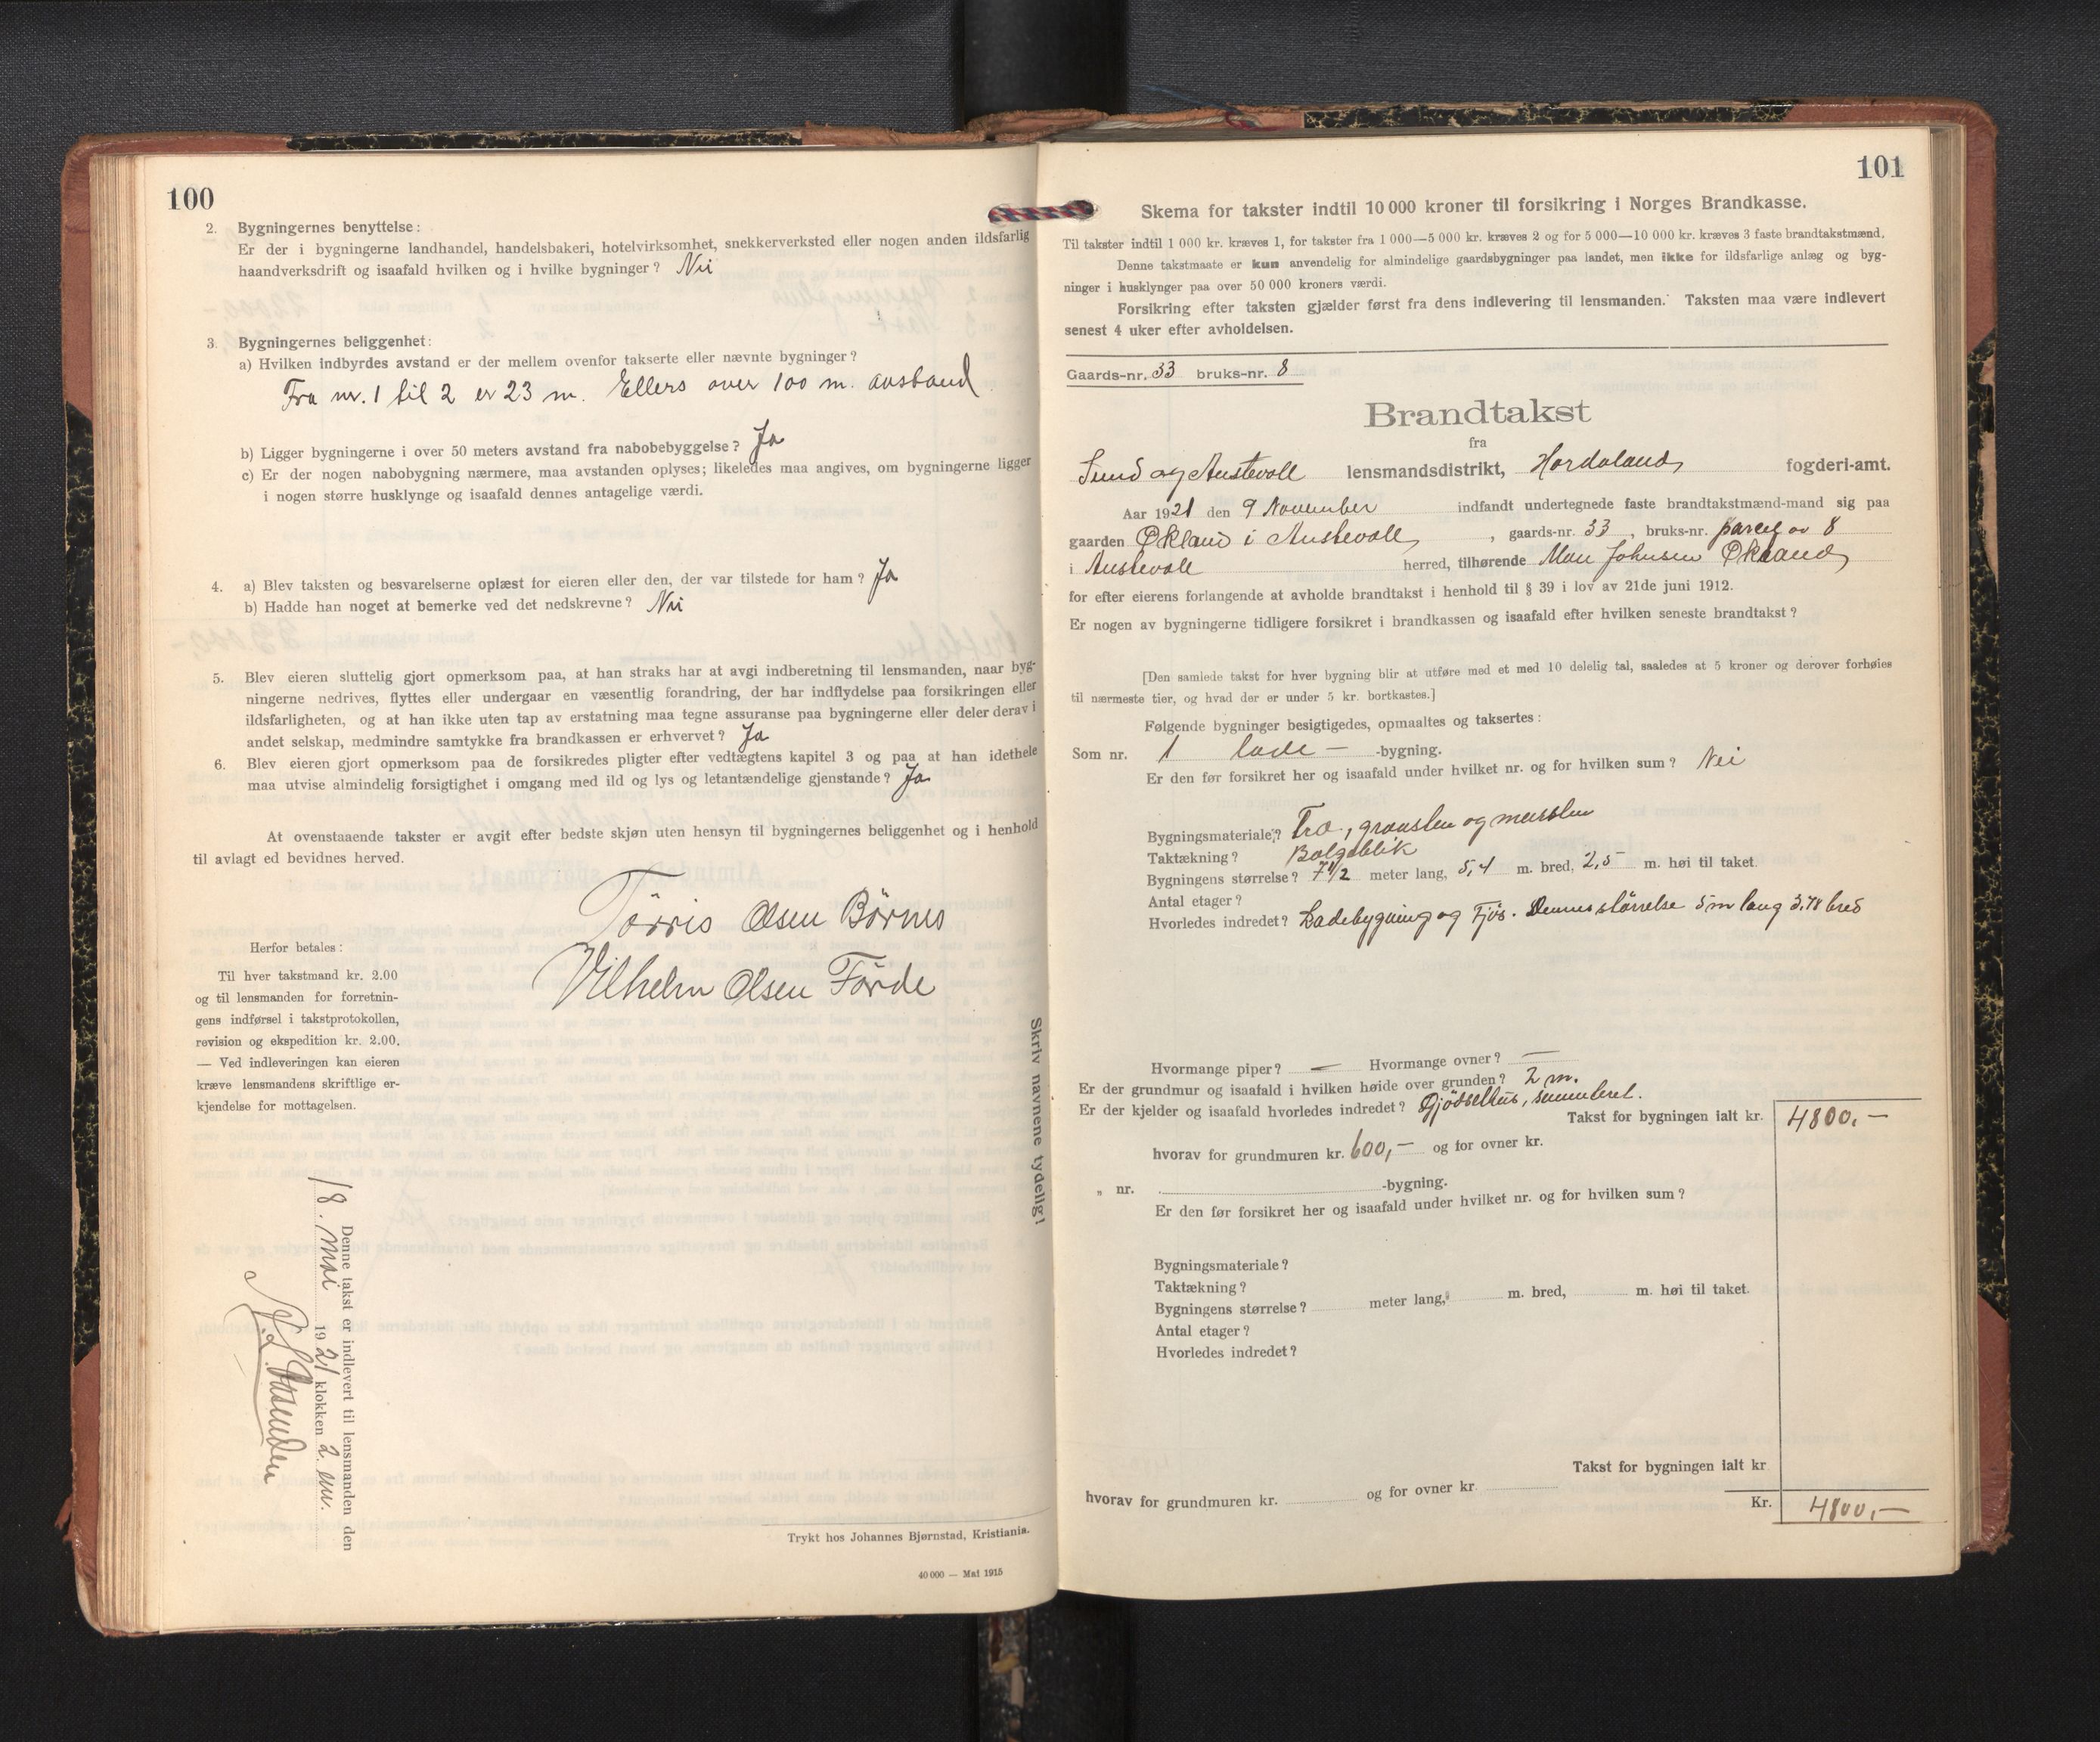 100
2. Bygningernes benyttelse:
Er der i bygningerne landhandel, handelsbakeri, hotelvirksomhet, snekkerverksted eller nogen anden ildsfarlig
haandverksdrift og isaafald hvilken og i hvilke bygninger? Nei
3. Bygningernes beliggenhet:
a) Hvilken indbyrdes avstand er der mellem ovenfor takserte eller nævnte bygninger?
Fra nr. 1 til 2 er 23 m. Ellers over 100 m. avstand
b) Ligger bygningerne i over 50 meters avstand fra nabobebyggelse? Ja
c) Er der nogen nabobygning nærmere, maa avstanden oplyses; likeledes maa angives, om bygningerne ligger
i nogen større husklynge og isaafald dennes antagelige værdi.
4. a) Blev taksten og besvarelserne oplæst for eieren eller den, der var tilstede for ham? Ja
b) Hadde han noget at bemerke ved det nedskrevne? Nei
5. Blev eieren sluttelig gjort opmerksom paa, at han straks har at avgi indberetning til lensmanden, naar byg-
ningerne nedrives, flyttes eller undergaar en væsentlig forandring, der har indflydelse paa forsikringen eller
ildsfarligheten, og at han ikke uten tap av erstatning maa tegne assuranse paa bygningerne eller deler derav i
andet selskap, medmindre samtykke fra brandkassen er erhvervet? Ja
6. Blev eieren gjort opmerksom paa de forsikredes pligter efter vedtægtens kapitel 3 og paa at han idethele
maa utvise almindelig forsigtighet i omgang med ild og lys og letantændelige gjenstande? Ja
At ovenstaaende takster er avgit efter bedste skjøn uten hensyn til bygningernes beliggenhet og i henhold
til avlagt ed bevidnes herved.
Törris Olsen Börnes
Vilhelm Olsen Förde
Herfor betales:
Til hver takstmand kr. 2.00
og til lensmanden for forretnin-
gens indførsel i takstprotokollen,
revision og ekspedition kr. 2.00.
— Ved indleveringen kan eieren
kræve lensmandens skriftlige er-
kjendelse for mottagelsen.
Skriv navnene tydelig!
Denne takst er indlevert til lensmanden den
18. mai 1921 klokken 2 em.
Trykt hos Johannes Bjørnstad, Kristiania.
40 000 — Mai 1915
101
Skema for takster indtil 10 000 kroner til forsikring i Norges Brandkasse.
Til takster indtil 1 000 kr. kræves 1, for takster fra 1 000—5 000 kr. kræves 2 og for 5 000—10 000 kr. kræves 3 faste brandtakstmænd.
Denne takstmaate er kun anvendelig for almindelige gaardsbygninger paa landet, men ikke for ildsfarlige anlæg og byg-
ninger i husklynger paa over 50 000 kroners værdi.
Forsikring efter taksten gjælder først fra dens indlevering til lensmanden. Taksten maa være indlevert
senest 4 uker efter avholdelsen.
Gaards-nr. 33 bruks-nr. 8
Brandtakst
fra
Sund og Austevoll lensmandsdistrikt, Hordaland fogderi-amt.
Aar 1921 den 9 November indfandt undertegnede faste brandtakstmænd-mand sig paa
gaarden Økland i Austevoll, gaards-nr. 33, bruks-nr. parcel av 8
i Austevoll herred, tilhørende Mons Johnsen Økland
for efter eierens forlangende at avholde brandtakst i henhold til § 39 i lov av 21de juni 1912.
Er nogen av bygningerne tidligere forsikret i brandkassen og isaafald efter hvilken seneste brandtakst?
[Den samlede takst for hver bygning blir at utføre med et med 10 delelig tal, saaledes at 5 kroner og derover forhøies
til nærmeste tier, og hvad der er under 5 kr. bortkastes.]
Følgende bygninger besigtigedes, opmaaltes og taksertes:
Som nr. 1 lade — -bygning.
Er den før forsikret her og isaafald under hvilket nr. og for hvilken sum? Nei
Bygningsmateriale? Træ, graasten og mursten
Taktækning? Bølgeblik
Bygningens størrelse? 7 1/2 meter lang, 5,4 m. bred, 2,5 m. høi til taket.
Antal etager?
Hvorledes indredet? Ladebygning og Fjös. Dennes störrelse 5 m lang 3.78 bred
Hvormange piper? — Hvormange ovner? —
Er der grundmur og isaafald i hvilken høide over grunden? 2 m.
Er der kjelder og isaafald hvorledes indredet? Gjödselhus, sementeret.
Takst for bygningen ialt kr. 4800,—
hvorav for grundmuren kr. 600,— og for ovner kr.
„ nr. -bygning.
Er den før forsikret her og isaafald under hvilket nr. og for hvilken sum?
Bygningsmateriale?
Taktækning?
Bygningens størrelse? meter lang, m. bred, m. høi til taket.
Antal etager?
Hvorledes indredet?
Takst for bygningen ialt kr
hvorav for grundmuren kr. og for ovner kr.
Kr. 4800,—